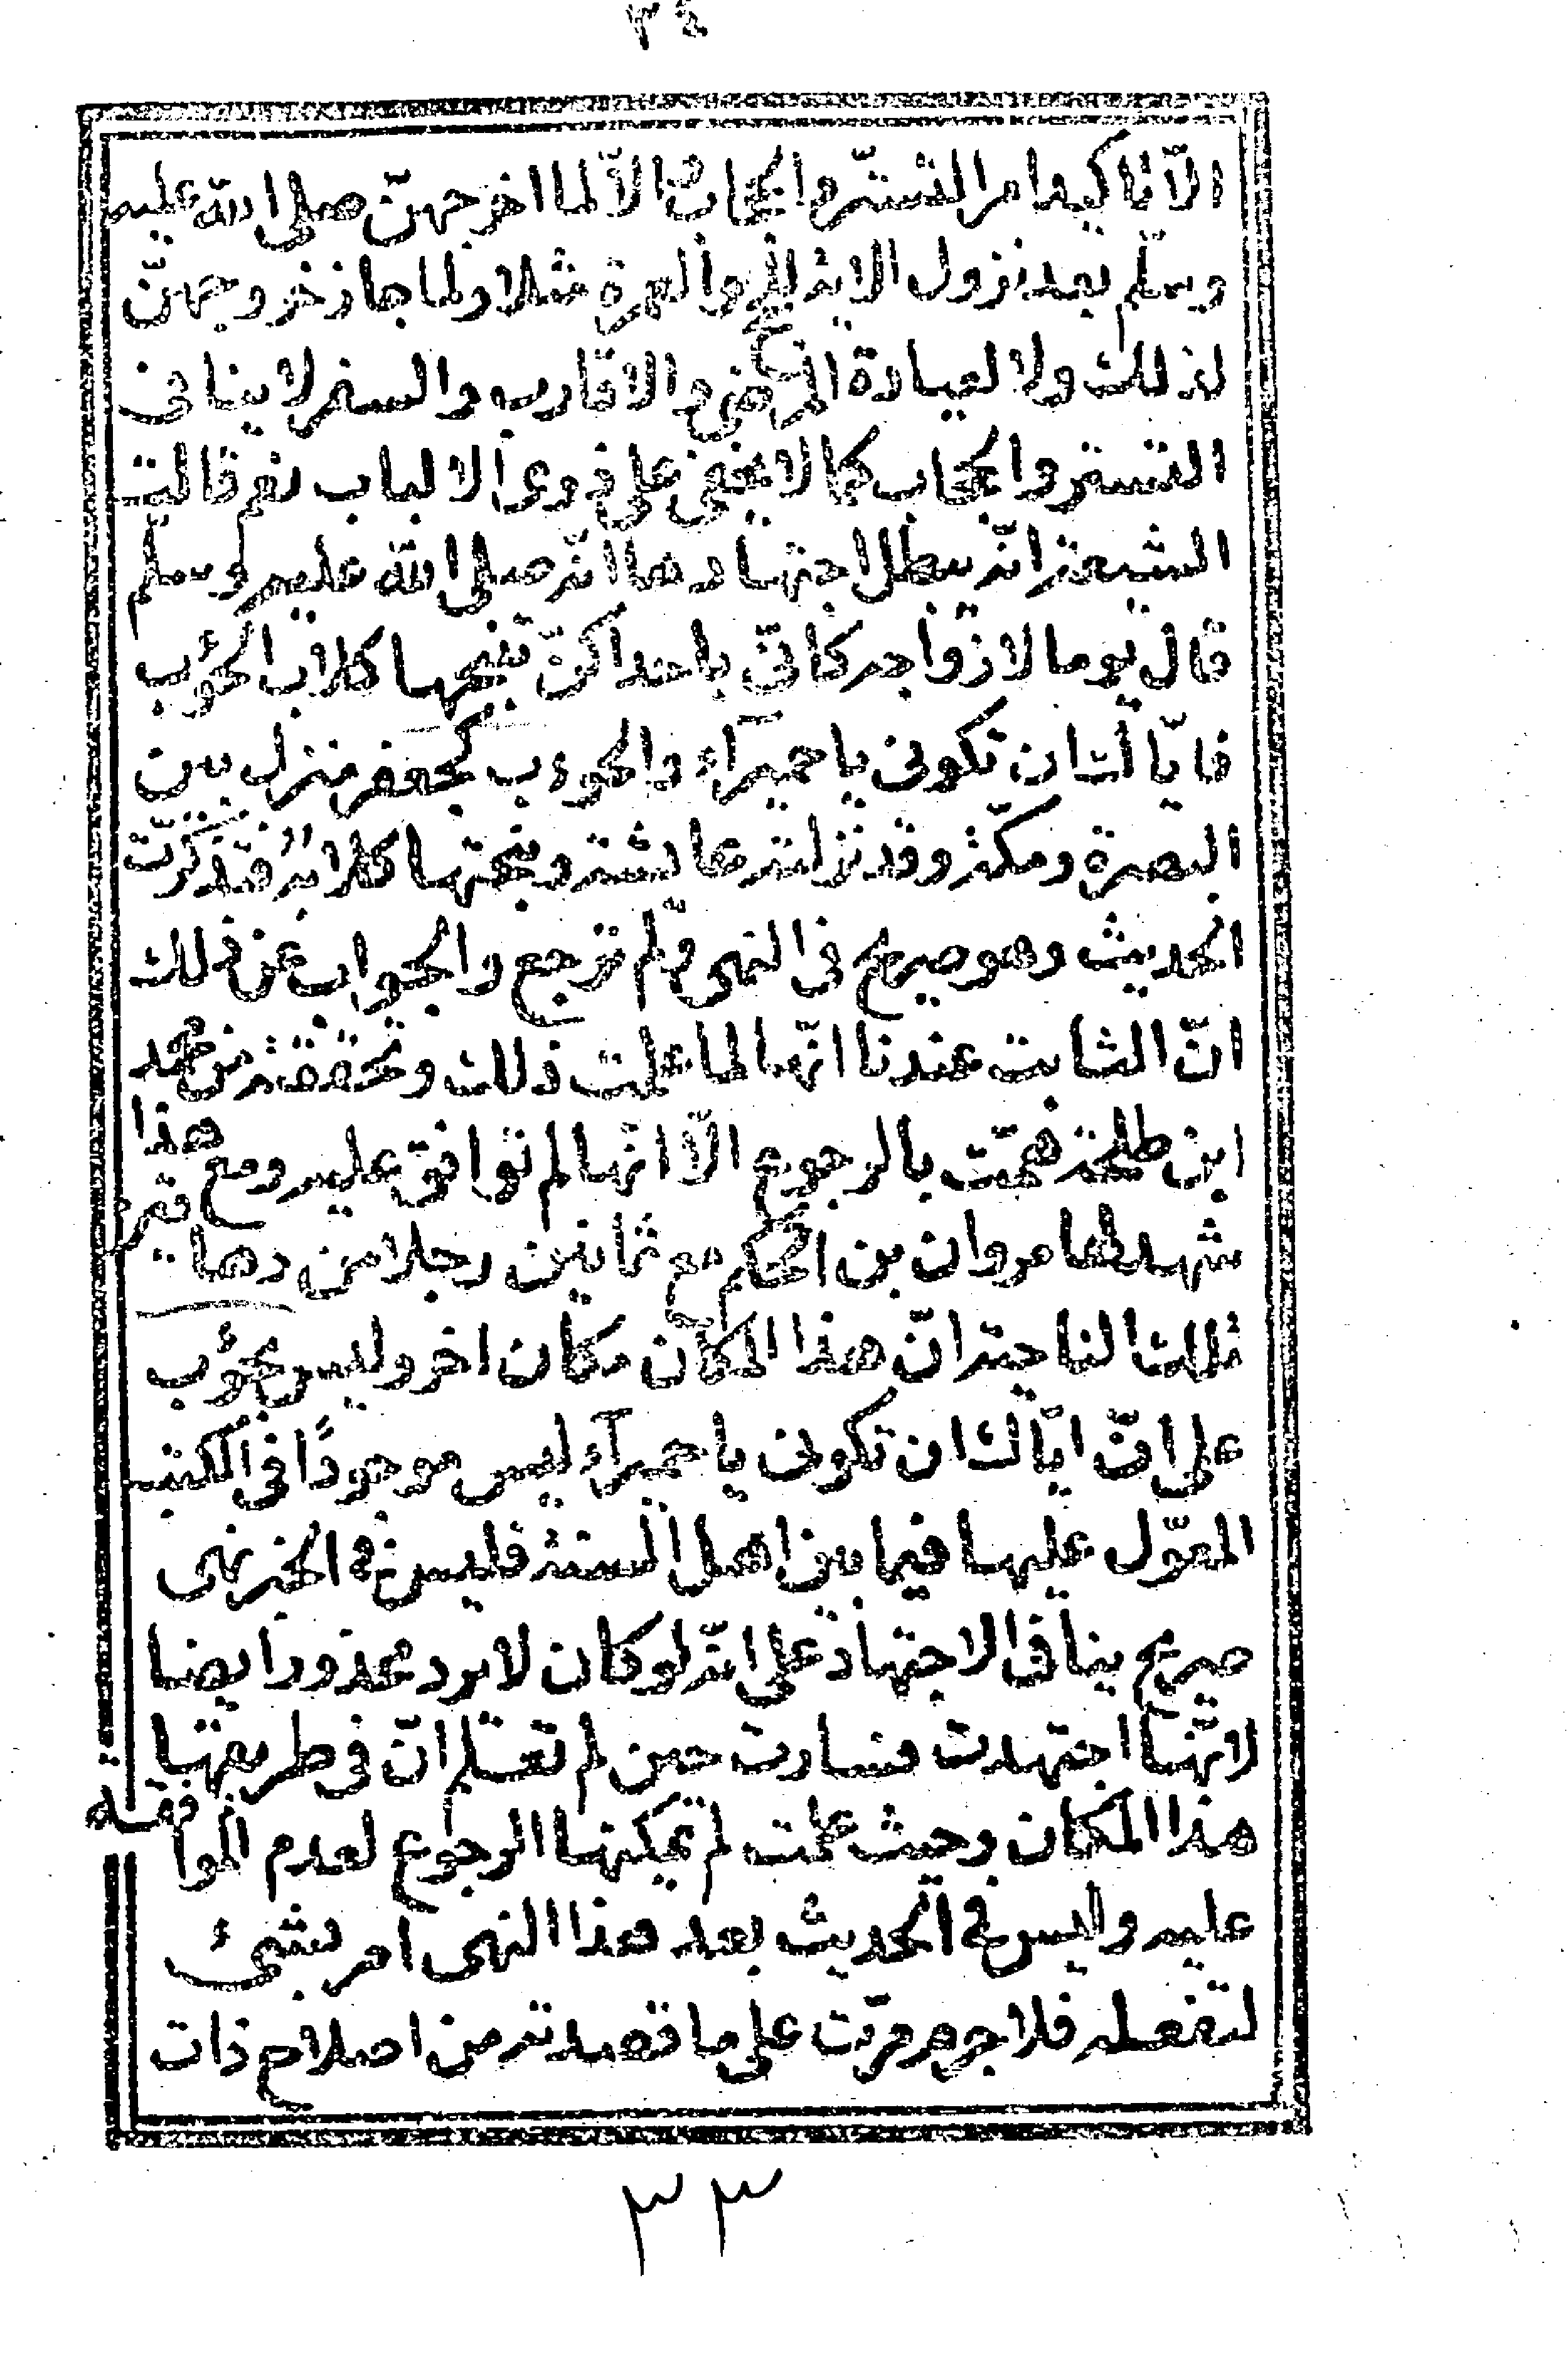 ٣٤
الّا تاكيد امر التستّر والحجاب والّا لما اخرجهنّ صلى الله عليه
وسلّم بعد نزول الاية للحج والعمرة مثلا ولما جاز خروجهنّ
لذلك ولا لعيادة المرضى والاقارب والسفر لا ينافى
التستر والحجاب كما لا يخفى على ذوى الالباب نعم قالت
الشيعة انّه يبطل اجتهادها انّه صلى الله عليه وسلم
قال يوما لازواجه كانّى باحداكنّ تنبحها كلاب الحوءب
فايّاك ان تكونى يا حميرآء والحوءب كجعفر منزل بين
البصرة ومكّة وقد نزلته عائشة ونبحتها كلابه فتذكرّت
الحديث وهو صريح فى النهى ولم ترجع والجواب عن ذلك
انّ الثابت عندنا انّها لما علمت ذلك وتحققته من محمد
ابن طلحة همّت بالرجوع الّا انّها لم توافق عليه ومع هذا
شهد لها مروان بن الحكم مع ثمانين رجلا من دهاقين
تلك الناحية انّ هذا المكان مكان اخر وليس بحوءب
على انّ ايّاك ان تكونى يا حميرآء ليس موجودًا فى الكتب
المعوّل عليها فيما بين اهل السنة فليس فى الخبر نهى
صريح ينافى الاجتهاد على انّه لو كان لا يرد محذور ايضا
لانّها اجتهدت فسارت حين لم تعلم انّ فى طريقها
هذا المكان وحيث علمت لم يمكنها الرجوع لعدم الموافقة
عليه وليس فى الحديث بعد هذا النهى امر بشىء
لتفعله فلا جرم مرّت على ما قصدته من اصلاح ذات
٣٣